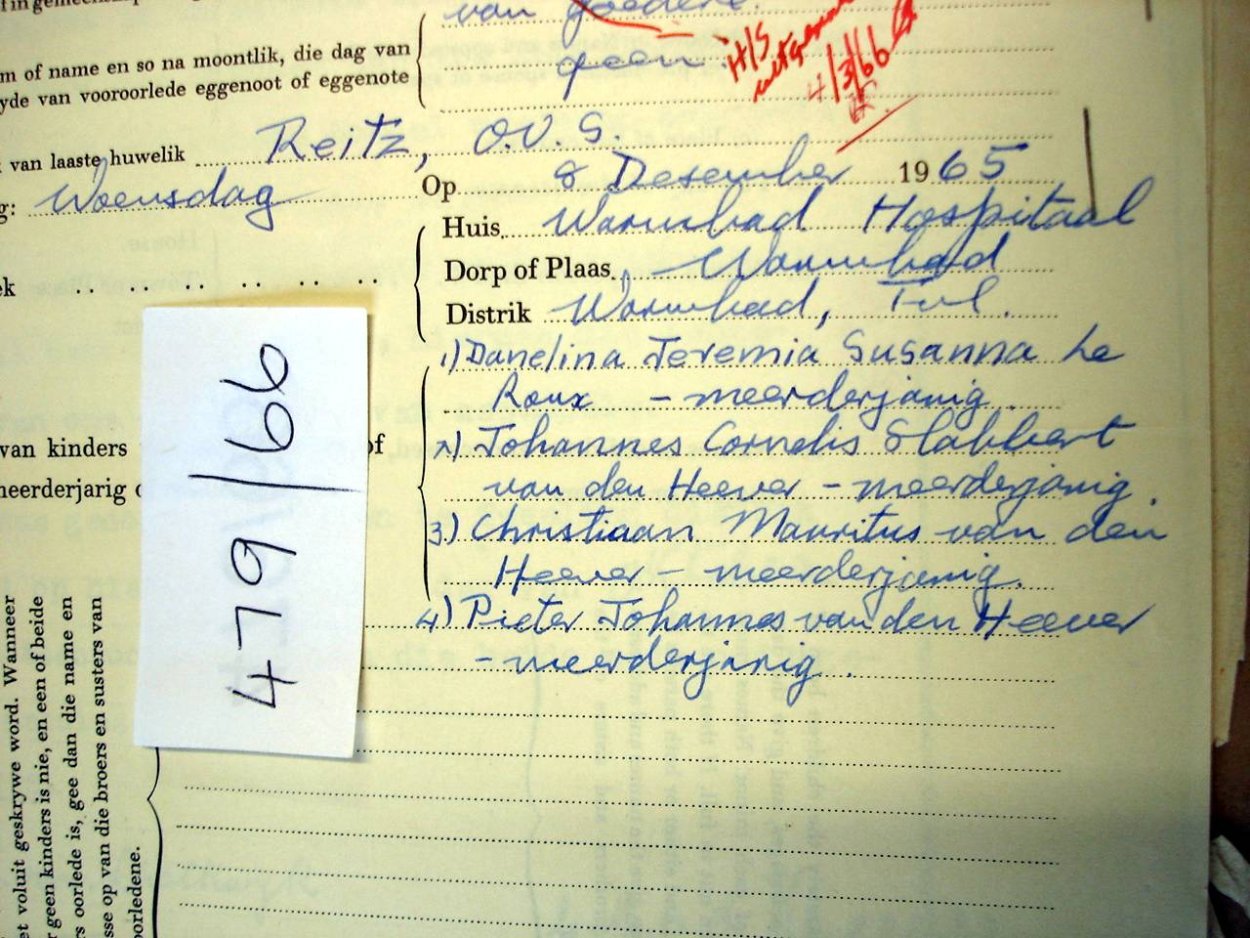 van goedere.
m of name en so na moontlik, die dag van
yde van vooroorlede eggenoot of eggenote
geen.
H/S
4/3/66
van laaste huwelik Reitz, O.V.S.
g: Woensdag Op 8 Desember 1965
Huis Warmbad Hospitaal
Dorp of Plaas Warmbad
ek
Distrik Warmbad, Tvl.
1) Danelina Jeremia Susanna Le
Roux - meerderjarig.
van kinders of
2) Johannes Cornelis Slabbert
meerderjarig
van den Heever - meerderjarig.
3) Christiaan Mauritus van den
Heever - meerderjarig.
4) Pieter Johannes van den Heever
- meerderjarig.
479/66
et voluit geskrywe word. Wanneer
r geen kinders is nie, en een of beide
rs oorlede is, gee dan die name en
sse op van die broers en susters van
oorledene.